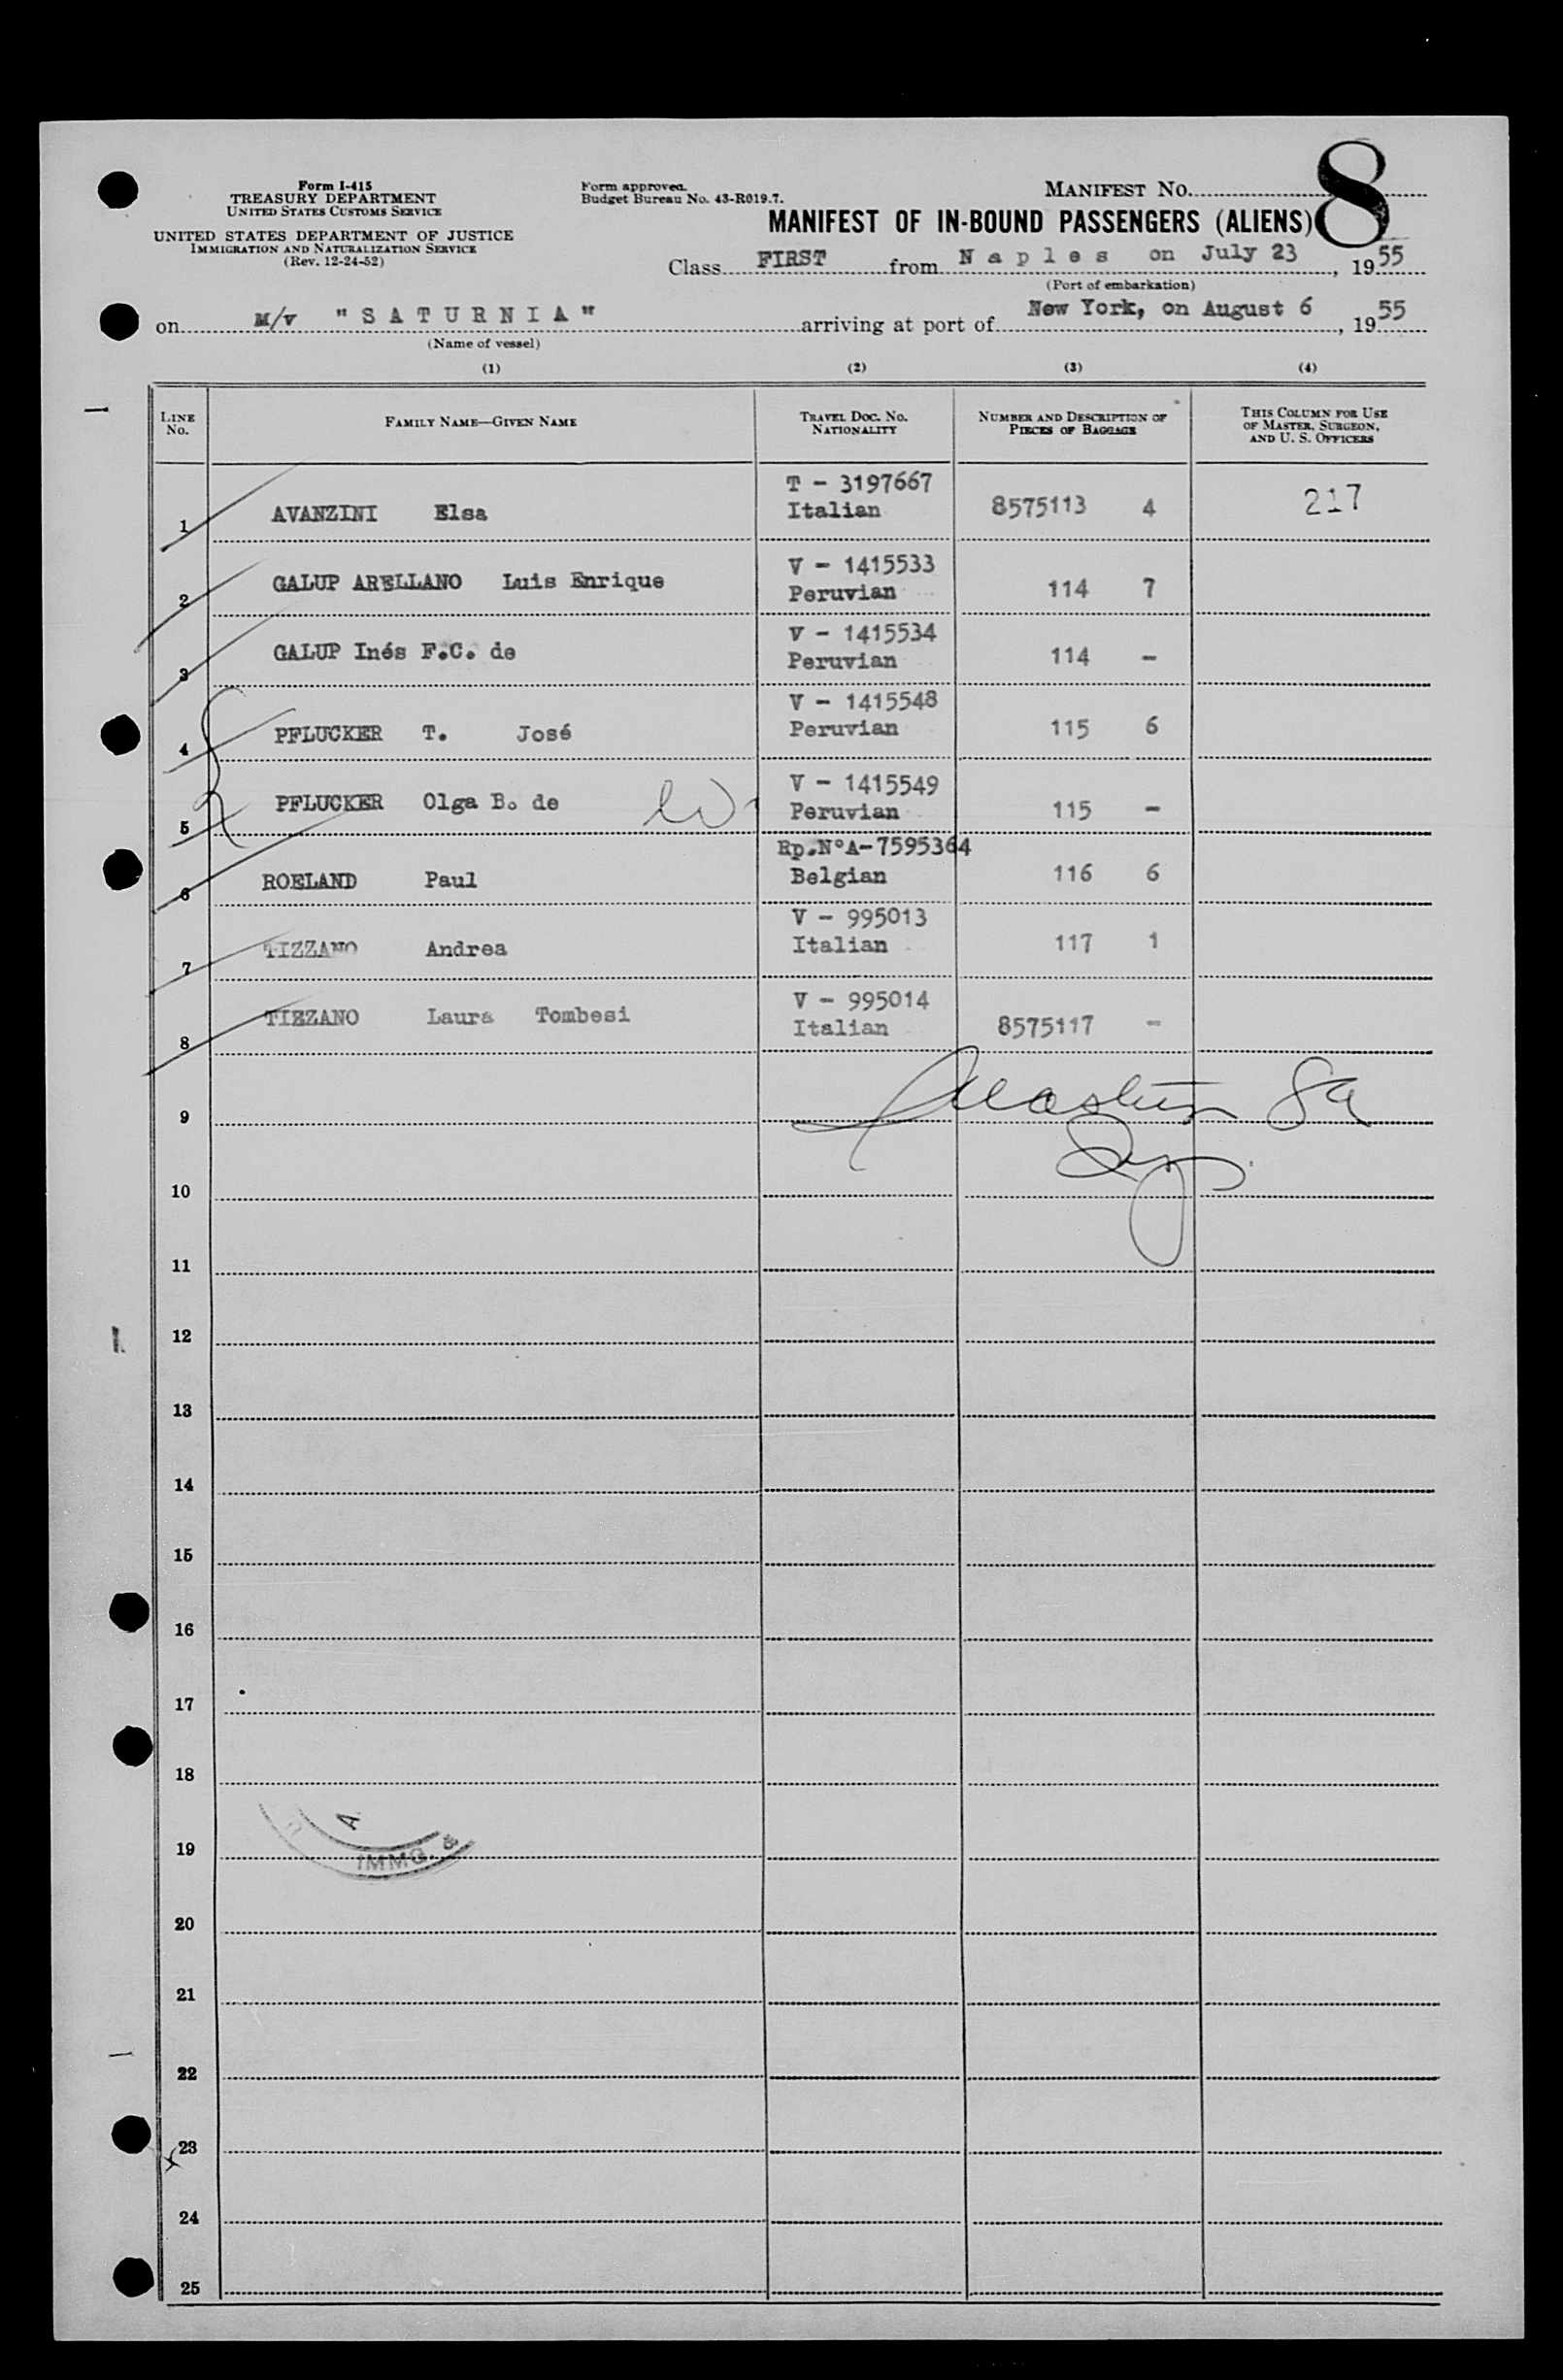 Form I-415
TREASURY DEPARTMENT
UNITED STATES CUSTOMS SERVICE
UNITED STATES DEPARTMENT OF JUSTICE
IMMIGRATION AND NATURALIZATION SERVICE
(Rev. 12-24-52)
Form approved.
Budget Bureau No. 43-R019.7.
MANIFEST NO. 8
MANIFEST OF IN-BOUND PASSENGERS (ALIENS)
Class FIRST from Naples on July 23, 1955
(Port of embarkation)
on M/v "SATURNIA" arriving at port of New York, on August 6, 1955
(Name of vessel)
(1) (2) (3) (4)
LINE NO. FAMILY NAME—GIVEN NAME TRAVEL DOC. NO. NATIONALITY NUMBER AND DESCRIPTION OF PIECES OF BAGGAGE THIS COLUMN FOR USE OF MASTER, SURGEON, AND U. S. OFFICERS
1 AVANZINI Elsa T - 3197667 Italian 8575113 4 217
2 GALUP ARELLANO Luis Enrique V - 1415533 Peruvian 114 7
3 GALUP Inés F.C. de V - 1415534 Peruvian 114 -
4 PFLUCKER T. José V - 1415548 Peruvian 115 6
5 PFLUCKER Olga B. de V - 1415549 Peruvian 115 -
6 ROELAND Paul Rp.N°A-7595364 Belgian 116 6
7 TIZZANO Andrea V - 995013 Italian 117 1
8 TIZZANO Laura Tombesi V - 995014 Italian 8575117 -
9
10
11
12
13
14
15
16
17
18
A
19
IMMG. &
20
21
22
23
24
25